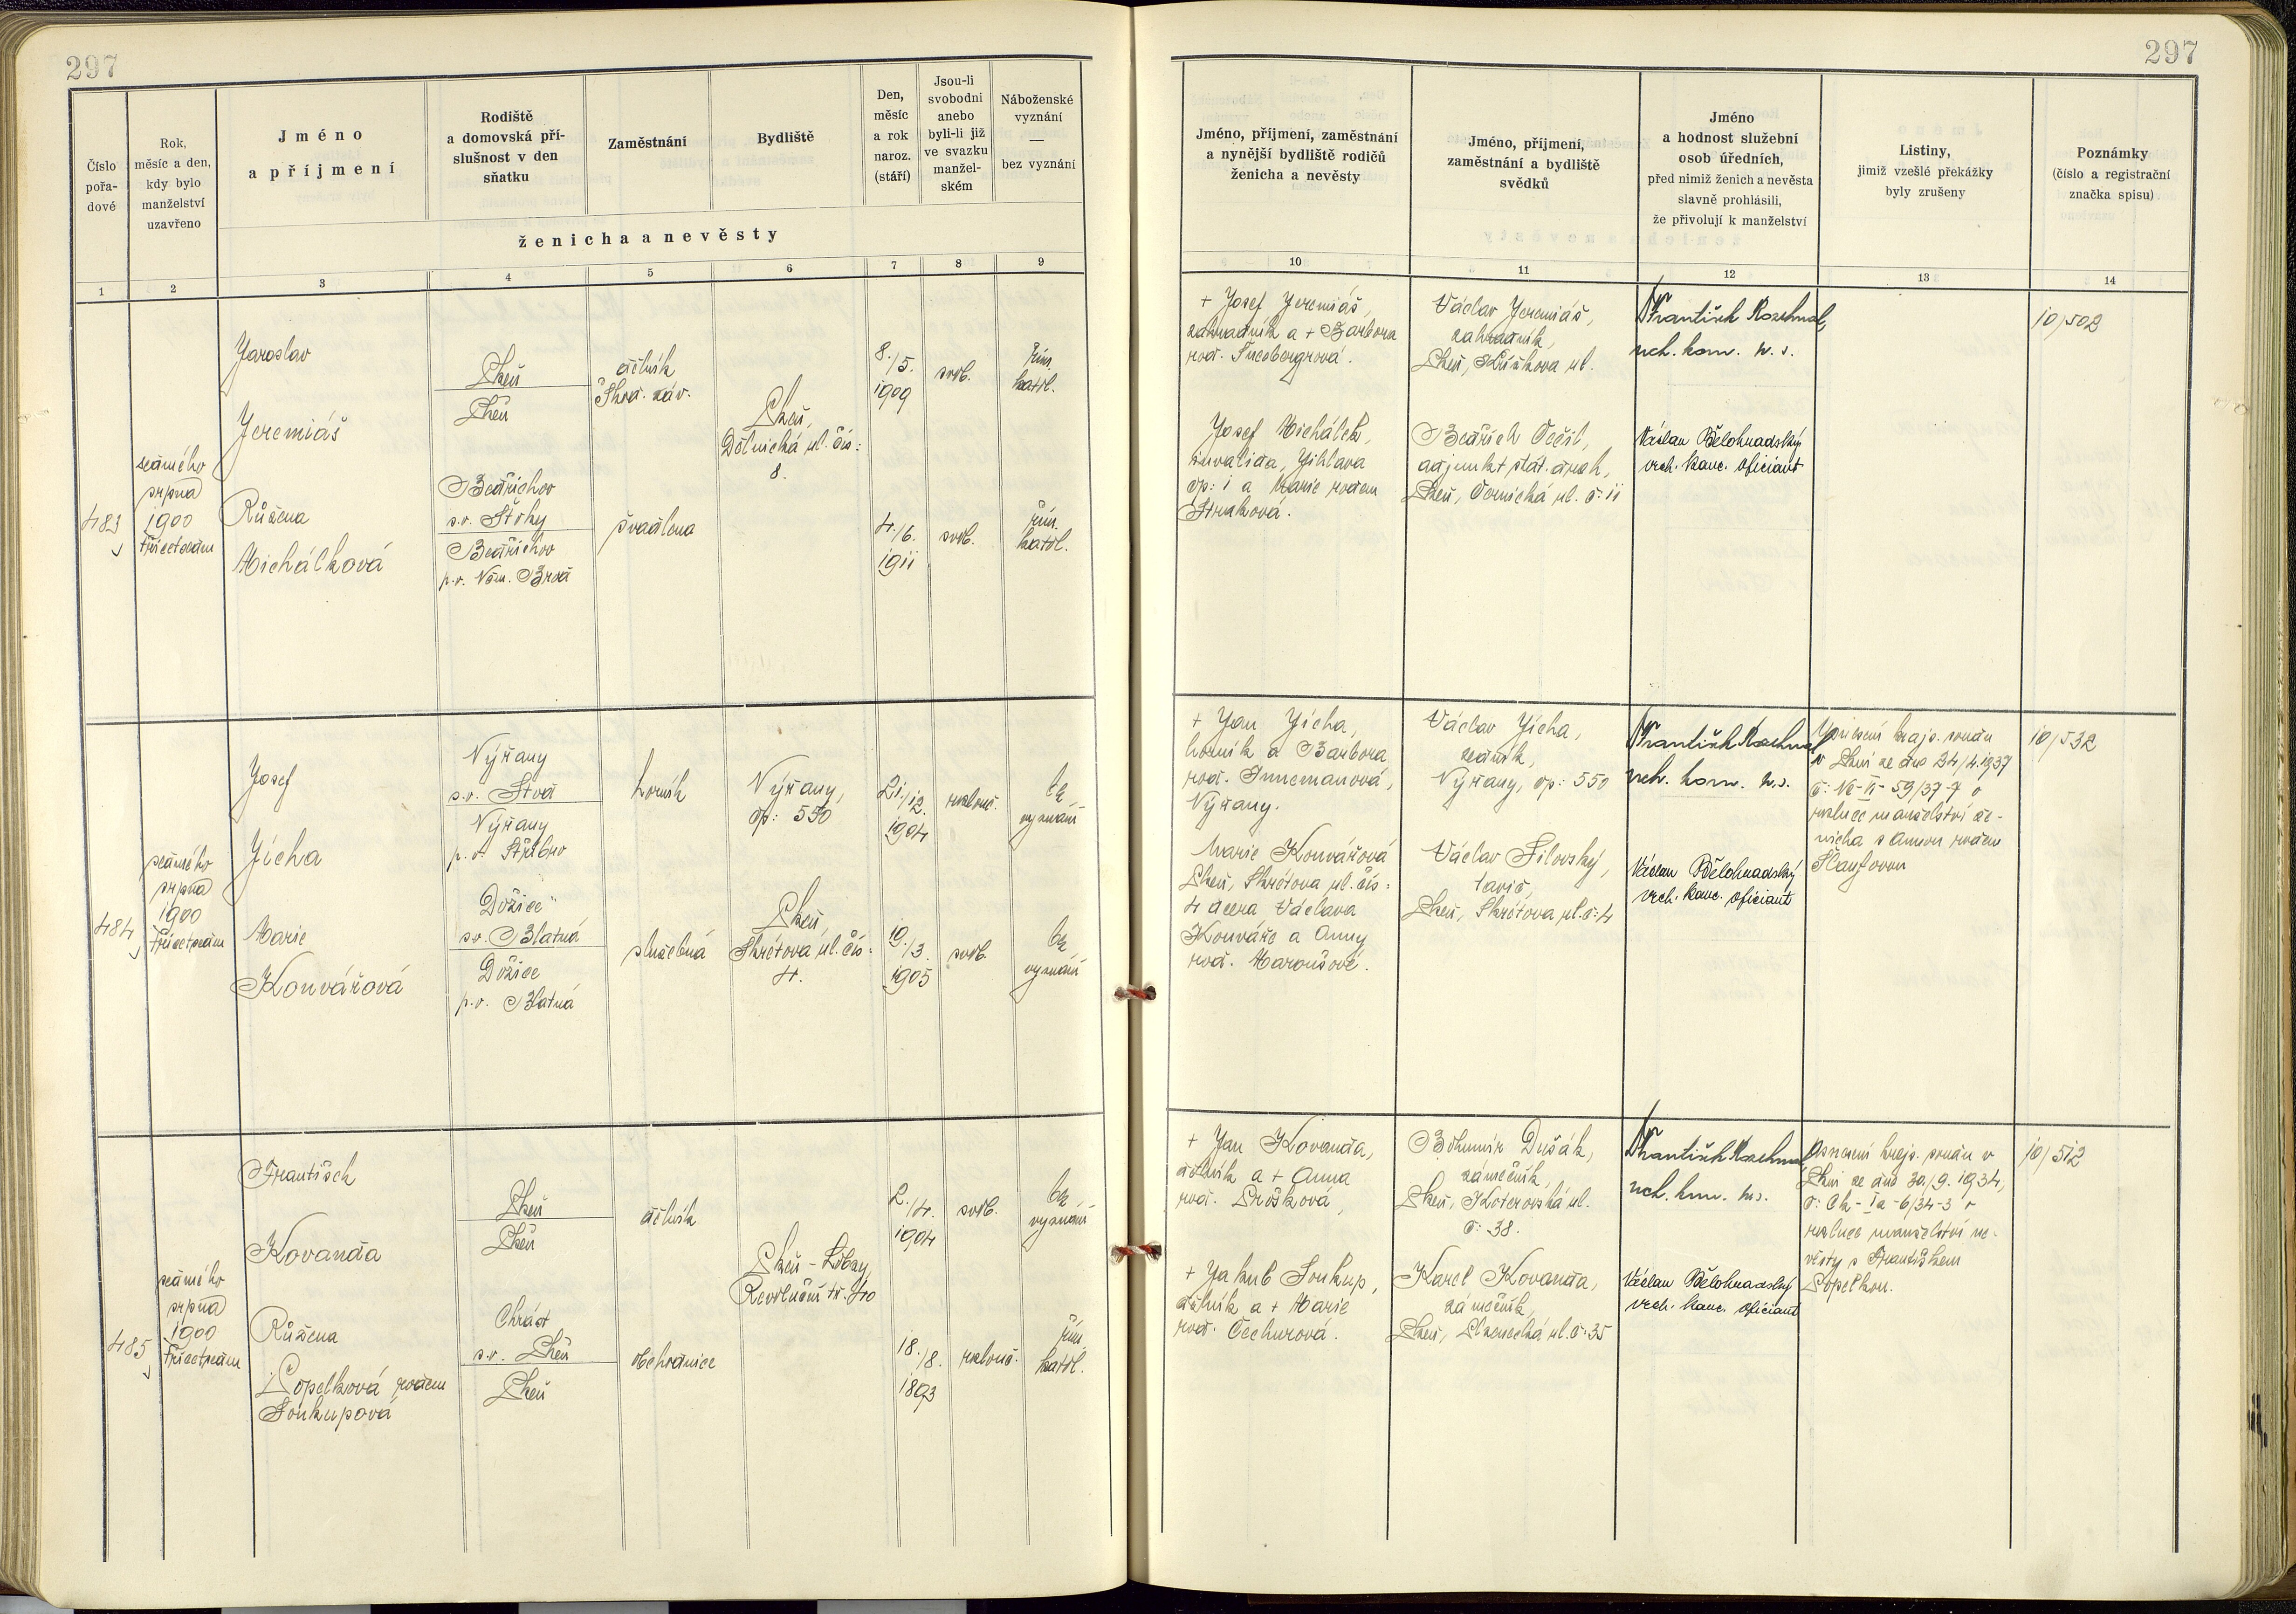 297
297
Číslo
pořa-
dové
Rok,
měsíc a den,
kdy bylo
manželství
uzavřeno
Jméno
a příjmení
Rodiště
a domovská pří-
slušnost v den
sňatku
Zaměstnání
Bydliště
Den,
měsíc
a rok
naroz.
(stáří)
Jsou-li
svobodni
anebo
byli-li již
ve svazku
manžel-
ském
Náboženské
vyznání
—
bez vyznání
ženicha a nevěsty
1
2
3
4
5
6
7
8
9
Jméno, příjmení, zaměstnání
a nynější bydliště rodičů
ženicha a nevěsty
Jméno, příjmení,
zaměstnání a bydliště
svědků
Jméno
a hodnost služební
osob úředních,
před nimiž ženich a nevěsta
slavně prohlásili,
že přivolují k manželství
Listiny,
jimiž vzešlé překážky
byly zrušeny
Poznámky
(číslo a registrační
značka spisu)
10
11
12
13
14
483
sedmého
srpna
1900
třicetsedm
Jaroslav
Jeremiáš
Růžena
Michálková
Plzeň
Plzeň
Bedřichov
s.o. Štoky
Bedřichov
p.o. Něm. Brod
dělník
Škod. záv.
švadlena
Plzeň,
Dělnická ul. čís:
8.
8./5.
1909
4./6.
1911
svob.
svob.
řím.
katol.
řím.
katol.
+ Josef Jeremiáš,
zahradník a + Barbora
roz.
Josef Michálek,
invalida, Jihlava
čp: 1 a Marie rodem
Straková.
Václav Jeremiáš,
zahradník,
Plzeň, Křížkova ul.
Bedřich Oččil,
adjunkt stát. drah,
Plzeň, ul. č: 11
František
uch. kom. m. s.
Václav Bělohradský
vrch. kanc. oficiant
10/502
484
sedmého
srpna
1900
třicetsedm
Josef
Jícha
Marie
Konvářová
Nýřany
s.o. Stod
Nýřany
p.o. Stříbro
Dožice
s.o. Blatná
Dožice
p.o. Blatná
horník
služebná
Nýřany,
čp: 550
Plzeň,
Škrétova ul. čís:
4.
21./12.
1904
19./3.
1905
rozlouč.
svob.
bez
vyznání
bez
vyznání
+ Jan Jícha,
horník a Barbora
roz. Innemanová,
Nýřany.
Marie Konvářová
Plzeň, Škrétova ul. čís:
4 dcera Václava
Konváře a Anny
roz. Maroušové.
Václav Jícha,
zedník,
Nýřany, čp: 550
Václav Silovský,
tavič,
Plzeň, Škrétova ul. č: 4
František
uch. kom. m. s.
Václav Bělohradský
vrch. kanc. oficiant
Usnesení krajs. soudu
v Plzni ze dne 24/4.1937
59/37-7 o
rozluce manželství že-
nicha s Annou rodem
10/532
485
sedmého
srpna
1900
třicetsedm
František
Kovanda
Růžena
Popelková rodem
Soukupová
Plzeň
Plzeň
Chrást
s.o. Plzeň
Plzeň
dělník
obchodnice
Plzeň - Lobzy
Revoluční tř. 40
2./4.
1904
18./8.
1893
svob.
rozlouč.
bez
vyznání
řím.
katol.
+ Jan Kovanda,
dělník a + Anna
roz.
+ Jakub Soukup,
dělník a + Marie
roz. Čechurová.
Bohumír Dušák,
zámečník,
Plzeň, Koterovská ul.
č: 38.
Karel Kovanda,
zámečník,
Plzeň, Plzenecká ul. č: 35
František
uch. kom. m. s.
Václav Bělohradský
vrch. kanc. oficiant
Usnesení krajs. soudu v
Plzni ze dne 30/9. 1934,
č: Ck-Ia-6/34-3 o
rozluce manželství ne-
věsty s Františkem
Popelkou.
10/512